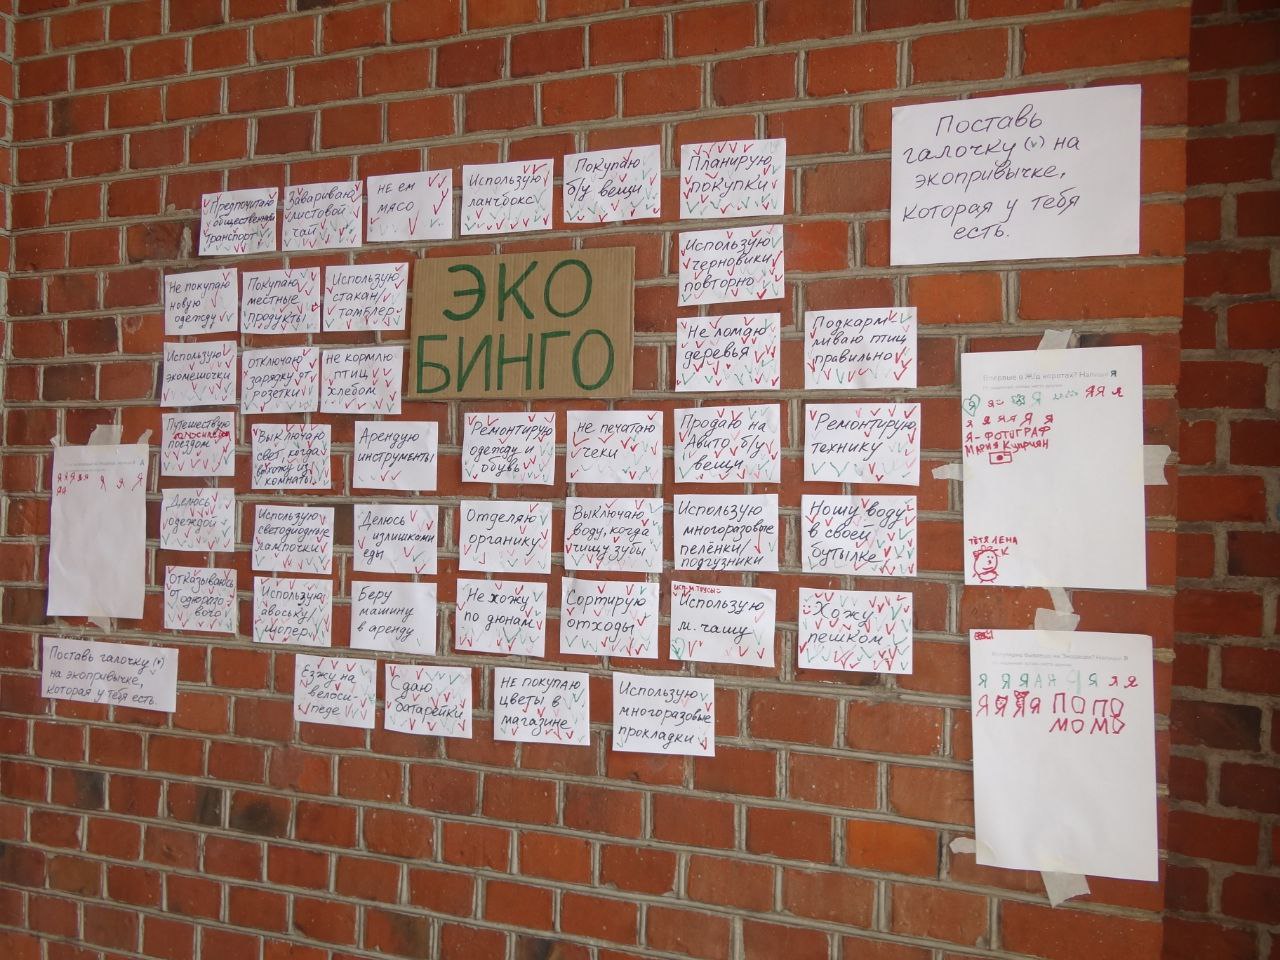 Поставь
галочку (v) на
экопривычке,
которая у тебя
есть.
Предпочитаю
общественный
транспорт
Завариваю
листовой
чай
не ем
мясо
Использую
ланчбокс
Покупаю
б/у вещи
Планирую
покупки
ЭКО
БИНГО
Не покупаю
новую
одежду
Покупаю
местные
продукты
Использую
стакан/
тамблер
Использую
черновики
повторно
Использую
экомешочки
отключаю
зарядку от
розетки
не кормлю
птиц
хлебом
Не ломаю
деревья
Подкарм-
ливаю птиц
правильно
Путешествую
поездом
Выключаю
свет, когда
выхожу из
комнаты
Арендую
инструменты
Ремонтирую
одежду и
обувь
не печатаю
чеки
Продаю на
Авито б/у
вещи
Ремонтирую
технику
Делюсь
одеждой
Использую
светодиодные
лампочки
Делюсь
излишками
еды
Отделяю
органику
Выключаю
воду, когда
чищу зубы
Использую
многоразовые
пелёнки/
подгузники
Ношу воду
в своей
бутылке
Отказываюсь
от однораз-
ового
Использую
авоську/
шопер
Беру
машину
в аренду
Не хожу
по дюнам
Сортирую
отходы
Использую
м. чашу
Хожу
пешком
Езжу на
велоси-
педе
Сдаю
батарейки
НЕ ПОКУПАЮ
ЦВЕТЫ В
МАГАЗИНЕ
Использую
многоразовые
прокладки
Поставь галочку (v)
на экопривычке,
которая у тебя есть.
Я Я Я Я Я Я Я Я
Я Я
Впервые в Ж/д воротах? Напиши Я
Я Я Я Я Я Я
Я Я Я Я Я Я
Я-ФОТОГРАФ
МАРИЯ
ТЁТЯ ЛЕНА
Я Я Я Я Я Я Я Я
Я Я Я Я ПОПО
МОМО